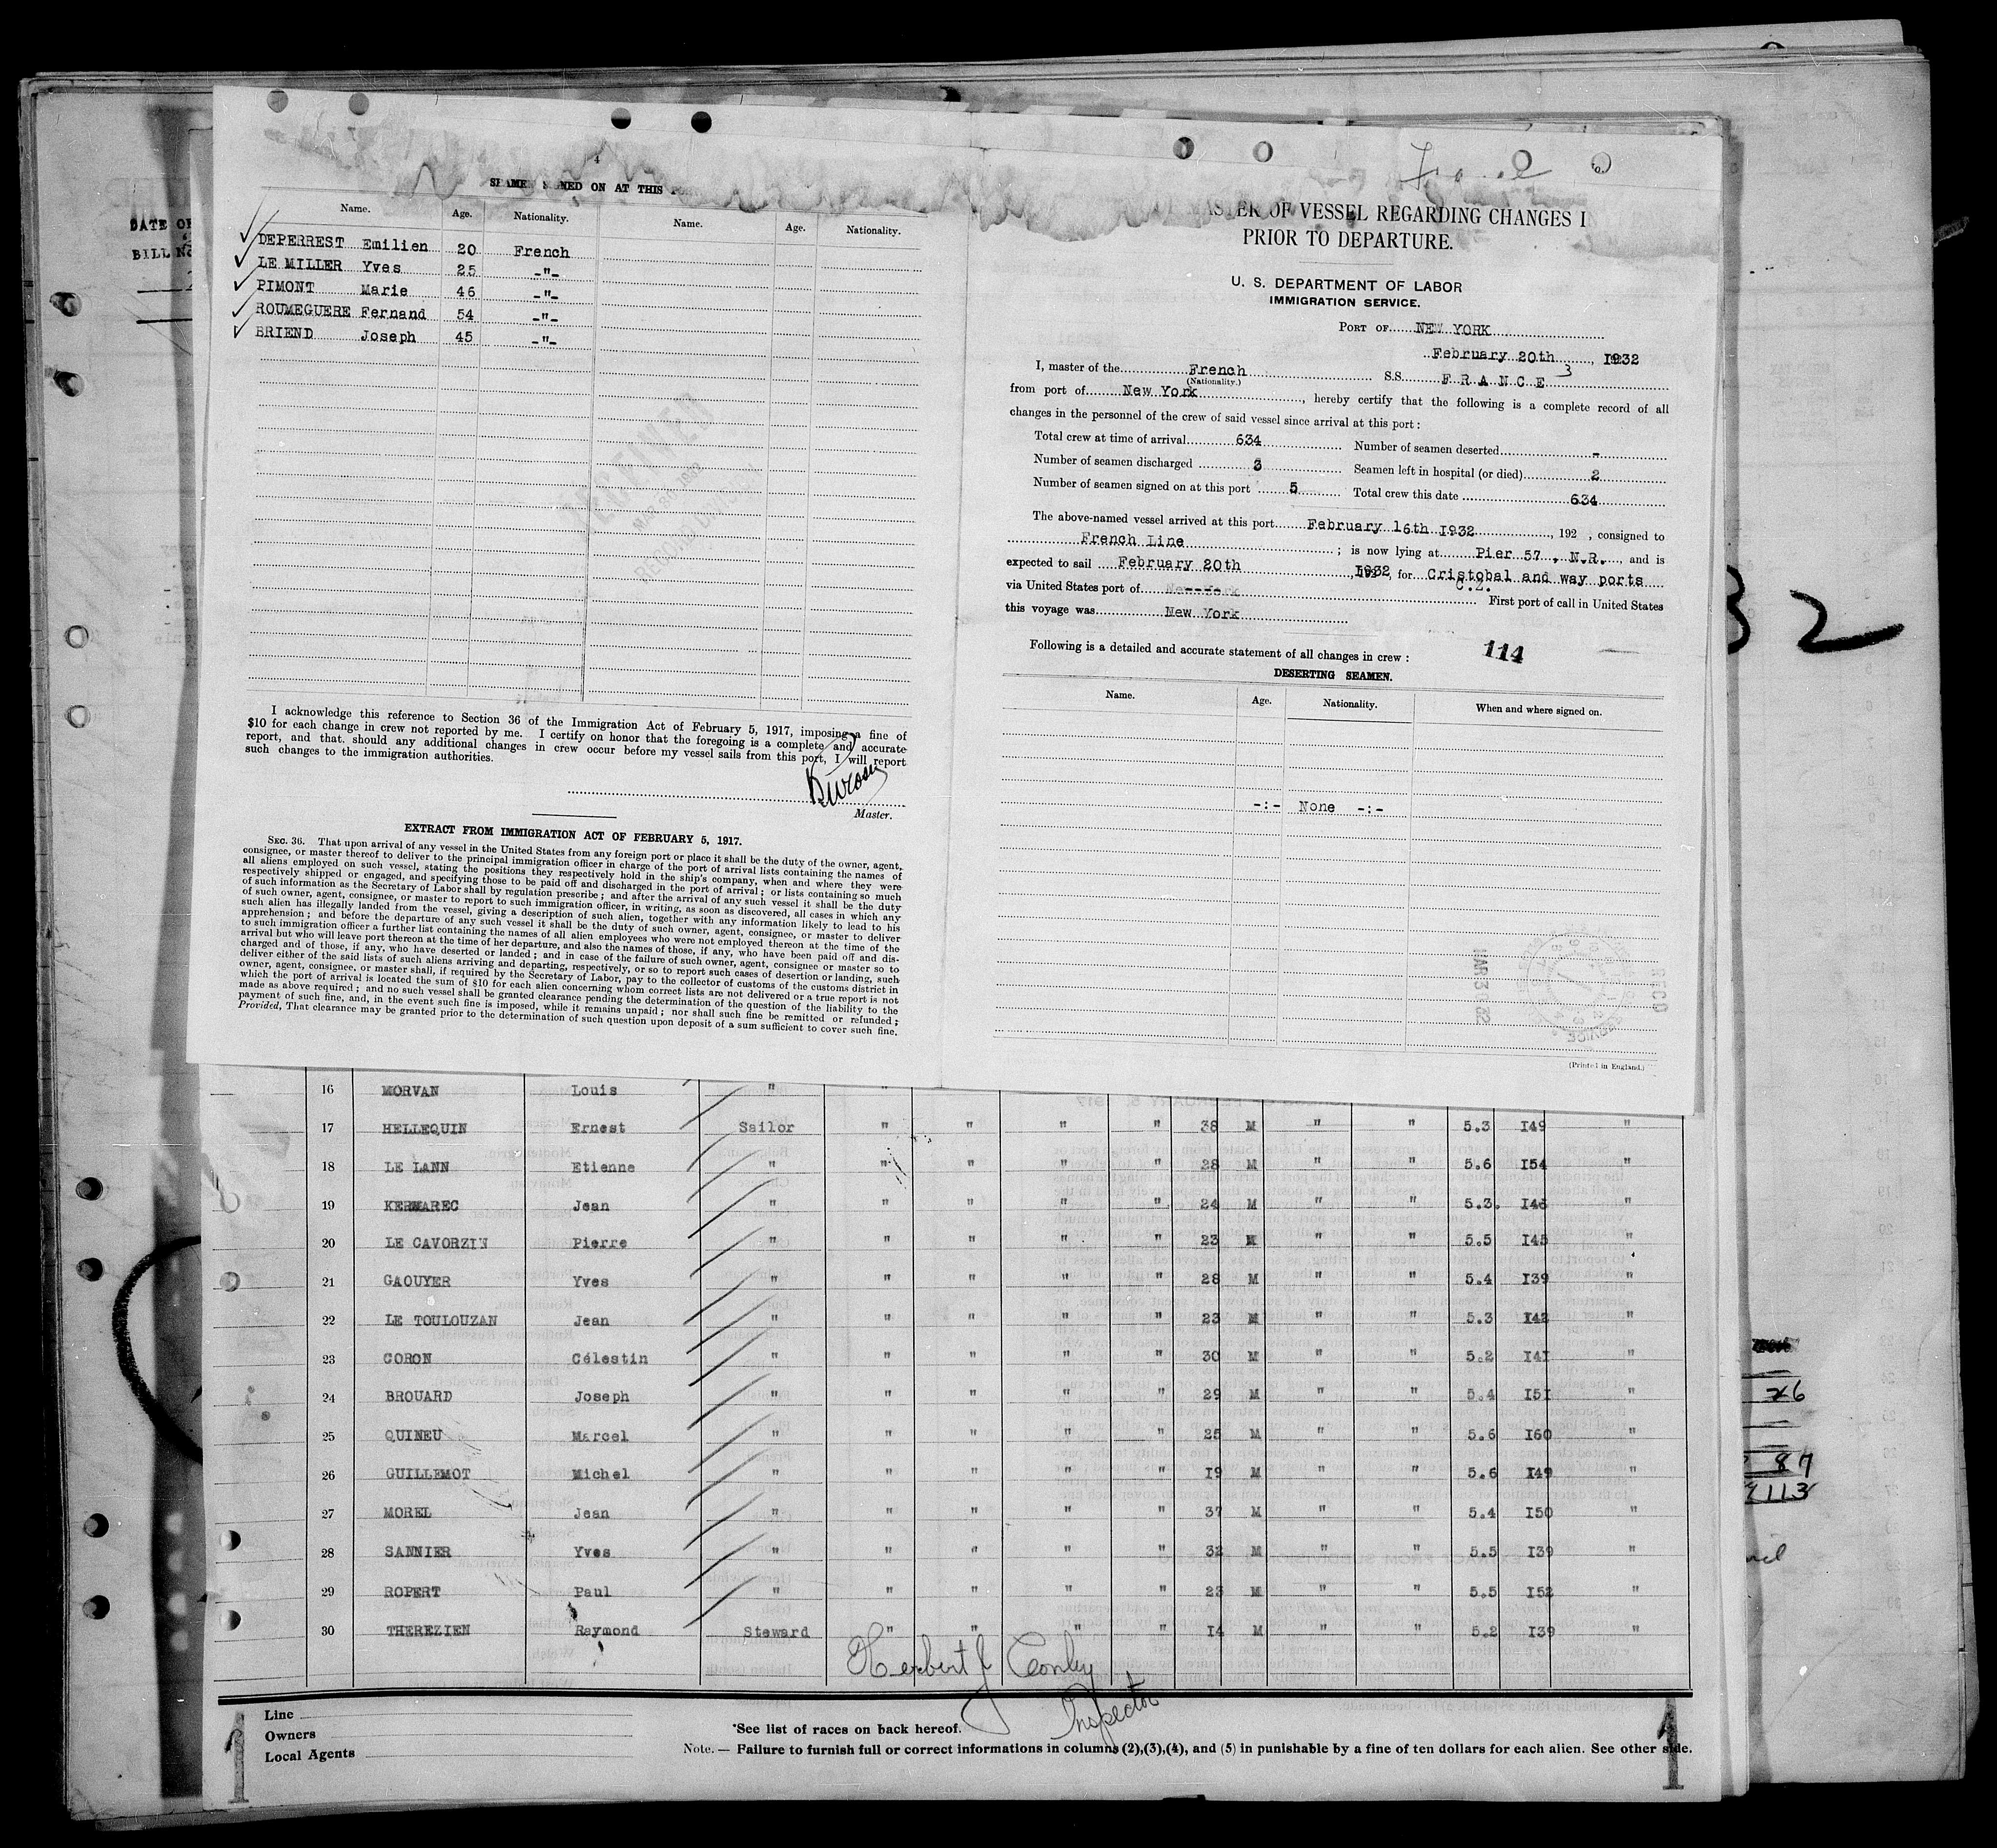 DATE OF
BILL No
4
SEAMEN SIGNED ON AT THIS
Name. Age. Nationality. Name. Age. Nationality.
DEPERREST Emilien 20 French
LE MILLER Yves 25 -"-
PIMONT Marie 46 -"-
ROUMEGUERE Fernand 54 -"-
BRIEND Joseph 45 -"-
RECEIVED
MAR 30 1932
RECORD DIVISION
I acknowledge this reference to Section 36 of the Immigration Act of February 5, 1917, imposing a fine of
$10 for each change in crew not reported by me. I certify on honor that the foregoing is a complete and accurate
report, and that. should any additional changes in crew occur before my vessel sails from this port, I will report
such changes to the immigration authorities.
Master.
EXTRACT FROM IMMIGRATION ACT OF FEBRUARY 5, 1917.
SEC. 36. That upon arrival of any vessel in the United States from any foreign port or place it shall be the duty of the owner, agent,
consignee, or master thereof to deliver to the principal immigration officer in charge of the port of arrival lists containing the names of
all aliens employed on such vessel, stating the positions they respectively hold in the ship's company, when and where they were
respectively shipped or engaged, and specifying those to be paid off and discharged in the port of arrival; or lists containing so much
of such information as the Secretary of Labor shall by regulation prescribe; and after the arrival of any such vessel it shall be the duty
of such owner, agent, consignee, or master to report to such immigration officer, in writing, as soon as discovered, all cases in which any
such alien has illegally landed from the vessel, giving a description of such alien, together with any information likely to lead to his
apprehension; and before the departure of any such vessel it shall be the duty of such owner, agent, consignee, or master to deliver
to such immigration officer a further list containing the names of all alien employees who were not employed thereon at the time of the
arrival but who will leave port thereon at the time of her departure, and also the names of those, if any, who have been paid off and dis-
charged and of those, if any, who have deserted or landed; and in case of the failure of such owner, agent, consignee or master so to
deliver either of the said lists of such aliens arriving and departing, respectively, or so to report such cases of desertion or landing, such
owner, agent, consignee, or master shall, if required by the Secretary of Labor, pay to the collector of customs of the customs district in
which the port of arrival is located the sum of $10 for each alien concerning whom correct lists are not delivered or a true report is not
made as above required; and no such vessel shall be granted clearance pending the determination of the question of the liability to the
payment of such fine, and, in the event such fine is imposed, while it remains unpaid; nor shall such fine be remitted or refunded;
Provided, That clearance may be granted prior to the determination of such question upon deposit of a sum sufficient to cover such fine.
MASTER OF VESSEL REGARDING CHANGES I
PRIOR TO DEPARTURE.
U. S. DEPARTMENT OF LABOR
IMMIGRATION SERVICE.
PORT OF NEW YORK
February 20th, 1932
I, master of the French S.S. FRANCE 3
(Nationality.)
from port of New York, hereby certify that the following is a complete record of all
changes in the personnel of the crew of said vessel since arrival at this port:
Total crew at time of arrival 634 Number of seamen deserted -
Number of seamen discharged 3 Seamen left in hospital (or died) 2
Number of seamen signed on at this port 5 Total crew this date 634
The above-named vessel arrived at this port February 16th 1932, 192 , consigned to
French Line ; is now lying at Pier 57 . N.R., and is
expected to sail February 20th 1932, for Cristobal and way ports
C.Z.
via United States port of New York First port of call in United States
this voyage was New York
Following is a detailed and accurate statement of all changes in crew: 114
DESERTING SEAMEN.
Name. Age. Nationality. When and where signed on.
-:- None -:-
MAR 30 32
REC'D
(Printed in England.)
32
16 MORVAN Louis " "
17 HELLEQUIN Ernest Sailor " " " " 38 M " " 5.3 149 "
18 LE LANN Etienne " " " " " 28 M " " 5.6 154 "
19 KERMAREC Jean " " " " " 24 M " " 5.3. 146 "
20 LE CAVORZIN Pierre " " " " " 23 M " " 5.5 145 "
21 GAOUYER Yves " " " " " 28 M " " 5.4 139 "
22 LE TOULOUZAN Jean " " " " " 23 M " " 5.3 142 "
23 CORON Célestin " " " " " 30 M " " 5.2 141 "
24 BROUARD Joseph " " " " " 29 M " " 5.4 151 "
25 QUINEU Marcel " " " " " 25 M " " 5.6 160 "
26 GUILLEMOT Michel " " " " " 19 M " " 5.6 149 "
27 MOREL Jean " " " " " 37 M " " 5.4 150 "
28 SANNIER Yves " " " " " 32 M " " 5.5 139 "
29 ROPERT Paul " " " " " 23 M " " 5.5 152 "
30 THEREZIEN Raymond Steward " " " " 14 M " " 5.2 139 "
Herbert J Conley
Inspector
26
87
113
Line
Owners
Local Agents
*See list of races on back hereof.
Note.— Failure to furnish full or correct informations in columns (2),(3),(4), and (5) in punishable by a fine of ten dollars for each alien. See other side.
1 1